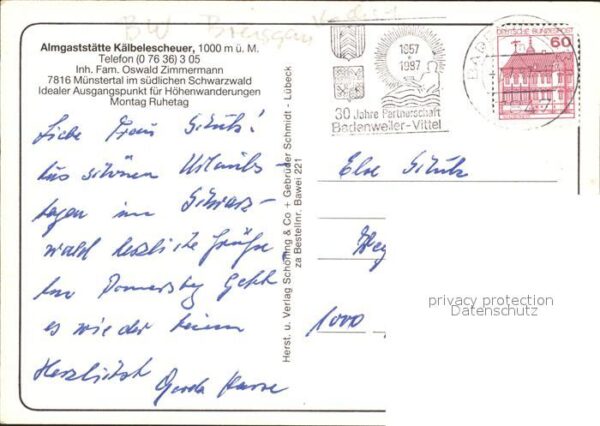 BW Breisgau
Almgaststätte Kälbelescheuer, 1000 m ü. M.
Telefon (0 76 36) 3 05
Inh. Fam. Oswald Zimmermann
7816 Münstertal im südlichen Schwarzwald
Idealer Ausgangspunkt für Höhenwanderungen
Montag Ruhetag
Liebe Frau Schulz!
Aus schönen Urlaubs-
tagen im Schwarz-
wald herzliche Grüße,
Donnerstag geht
es wieder heim
Herzlichst Gerda
Herst. u. Verlag Schöning & Co + Gebrüder Schmidt - Lübeck
za Bestellnr. Bawei 221
1957
1987
30 Jahre Partnerschaft
Badenweiler-Vittel
DEUTSCHE BUNDESPOST
60
Else Schulz
1000
privacy protection
Datenschutz